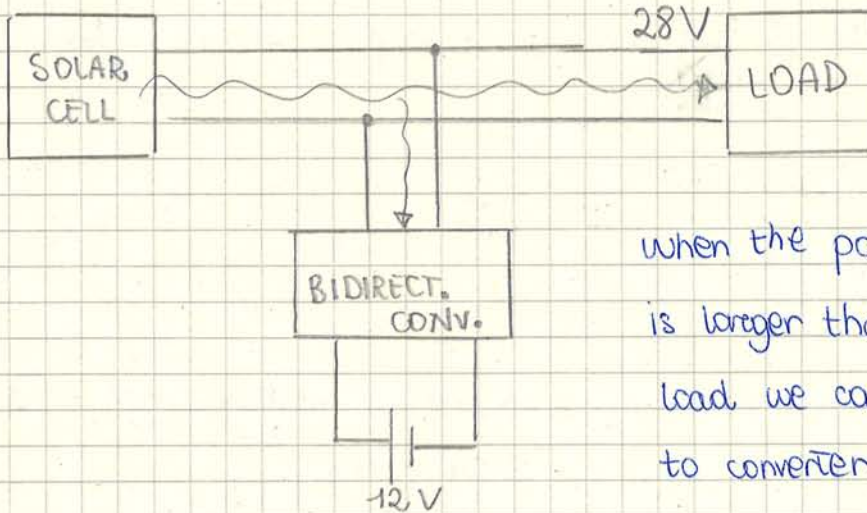 28V
SOLAR
CELL
LOAD
BIDIRECT.
CONV.
12V
when the
is larger
load we
to converter